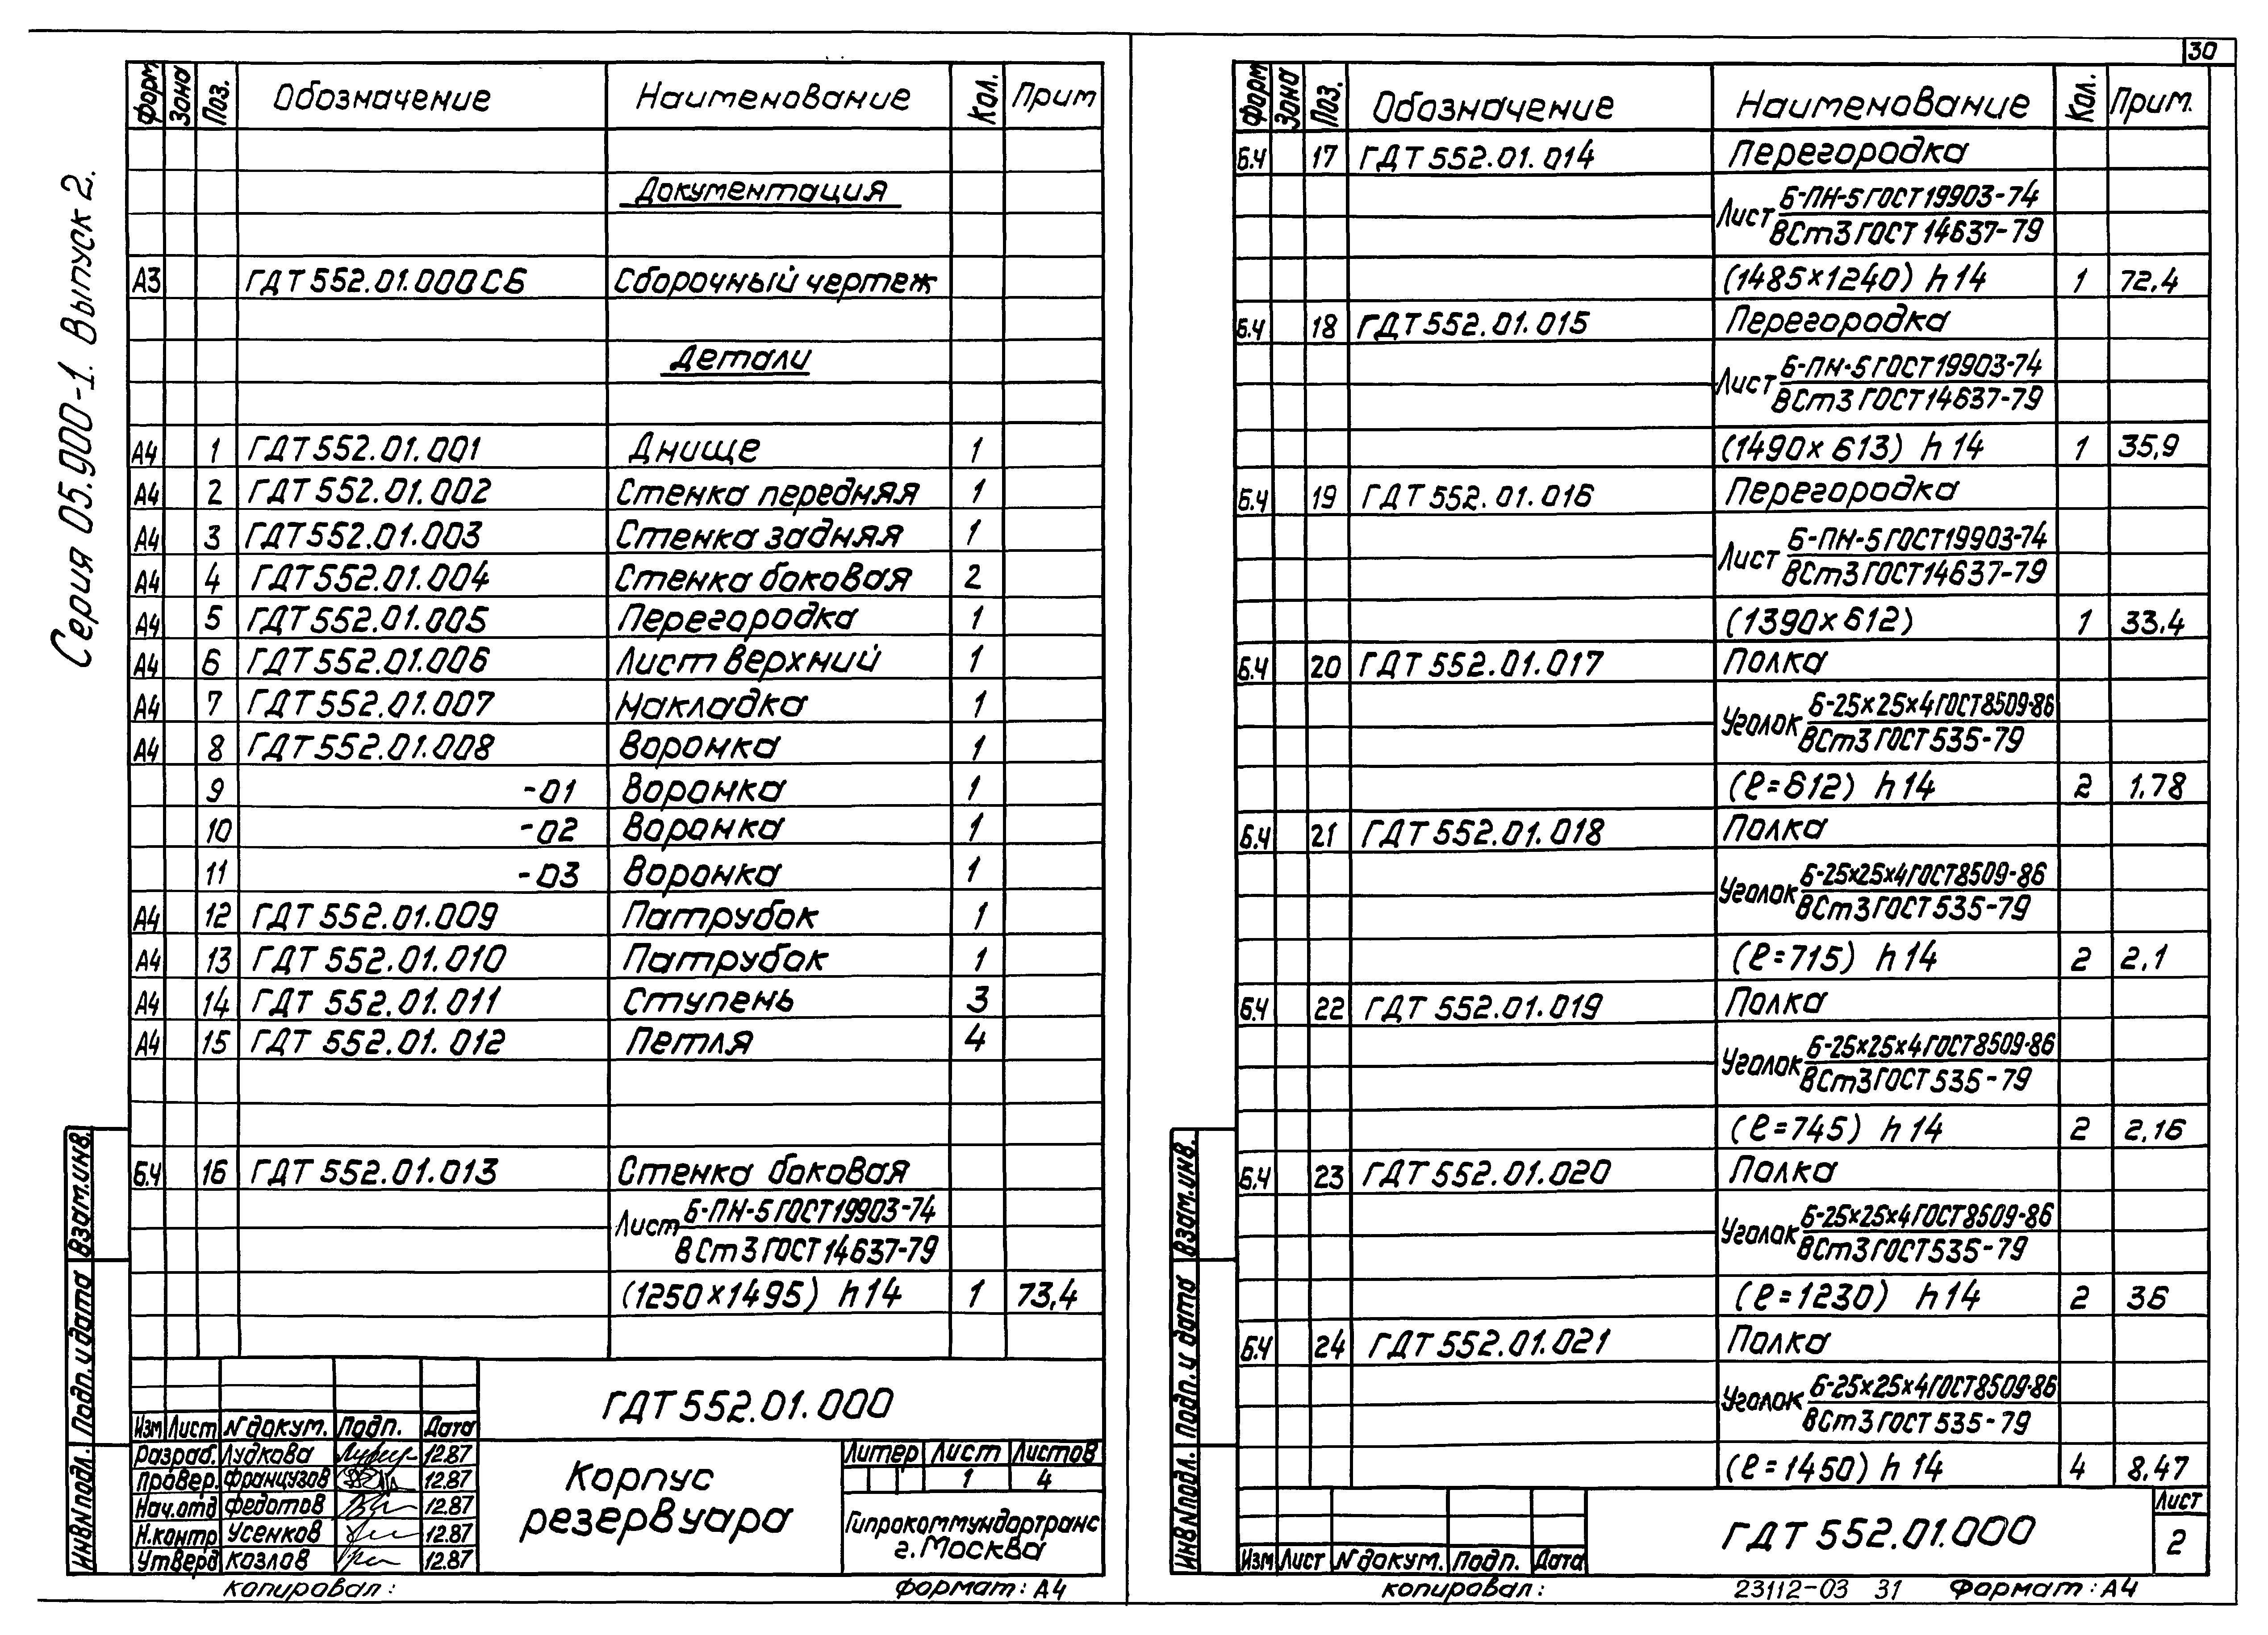 Серия 05.900-1. Выпуск 2.
Форм Зона Поз. Обозначение Наименование Кол. Прим
Документация
А3 ГДТ 552.01.000СБ Сборочный чертеж
Детали
А4 1 ГДТ 552.01.001 Днище 1
А4 2 ГДТ 552.01.002 Стенка передняя 1
А4 3 ГДТ 552.01.003 Стенка задняя 1
А4 4 ГДТ 552.01.004 Стенка боковая 2
А4 5 ГДТ 552.01.005 Перегородка 1
А4 6 ГДТ 552.01.006 Лист верхний 1
А4 7 ГДТ 552.01.007 Накладка 1
А4 8 ГДТ 552.01.008 Воронка 1
9 -01 Воронка 1
10 -02 Воронка 1
11 -03 Воронка 1
А4 12 ГДТ 552.01.009 Патрубок 1
А4 13 ГДТ 552.01.010 Патрубок 1
А4 14 ГДТ 552.01.011 Ступень 3
А4 15 ГДТ 552.01.012 Петля 4
Б.Ч 16 ГДТ 552.01.013 Стенка боковая
Лист Б-ПН-5 ГОСТ 19903-74
ВСт3 ГОСТ 14637-79
(1250×1495) h14 1 73,4
ГДТ 552.01.000
Изм Лист N докум. Подп. Дата
Разраб. Лудкова 12.87
Провер. Французов 12.87
Нач.отд Федотов 12.87
Н.контр Усенков 12.87
Утверд Козлов 12.87
Корпус
резервуара
Литер Лист Листов
1 4
Гипрокоммундортранс
г. Москва
Взам.инв.
Подп. и дата
Инв N подл.
копировал:
формат: А4
30
Форм Зона Поз. Обозначение Наименование Кол. Прим.
Б.Ч 17 ГДТ 552.01.014 Перегородка
Лист Б-ПН-5 ГОСТ 19903-74
ВСт3 ГОСТ 14637-79
(1485×1240) h14 1 72,4
Б.Ч 18 ГДТ 552.01.015 Перегородка
Лист Б-ПН-5 ГОСТ 19903-74
ВСт3 ГОСТ 14637-79
(1490×613) h14 1 35,9
Б.Ч 19 ГДТ 552.01.016 Перегородка
Лист Б-ПН-5 ГОСТ 19903-74
ВСт3 ГОСТ 14637-79
(1390×612) 1 33,4
Б.Ч 20 ГДТ 552.01.017 Полка
Уголок Б-25×25×4 ГОСТ 8509-86
ВСт3 ГОСТ 535-79
(ℓ=612) h14 2 1,78
Б.Ч 21 ГДТ 552.01.018 Полка
Уголок Б-25×25×4 ГОСТ 8509-86
ВСт3 ГОСТ 535-79
(ℓ=715) h14 2 2,1
Б.Ч 22 ГДТ 552.01.019 Полка
Уголок Б-25×25×4 ГОСТ 8509-86
ВСт3 ГОСТ 535-79
(ℓ=745) h14 2 2,16
Б.Ч 23 ГДТ 552.01.020 Полка
Уголок Б-25×25×4 ГОСТ 8509-86
ВСт3 ГОСТ 535-79
(ℓ=1230) h14 2 36
Б.Ч 24 ГДТ 552.01.021 Полка
Уголок Б-25×25×4 ГОСТ 8509-86
ВСт3 ГОСТ 535-79
(ℓ=1450) h14 4 8,47
Изм Лист N докум. Подп. Дата
ГДТ 552.01.000
Лист
2
Взам.инв.
Подп. и дата
Инв N подл.
копировал:
23112-03 31 Формат: А4